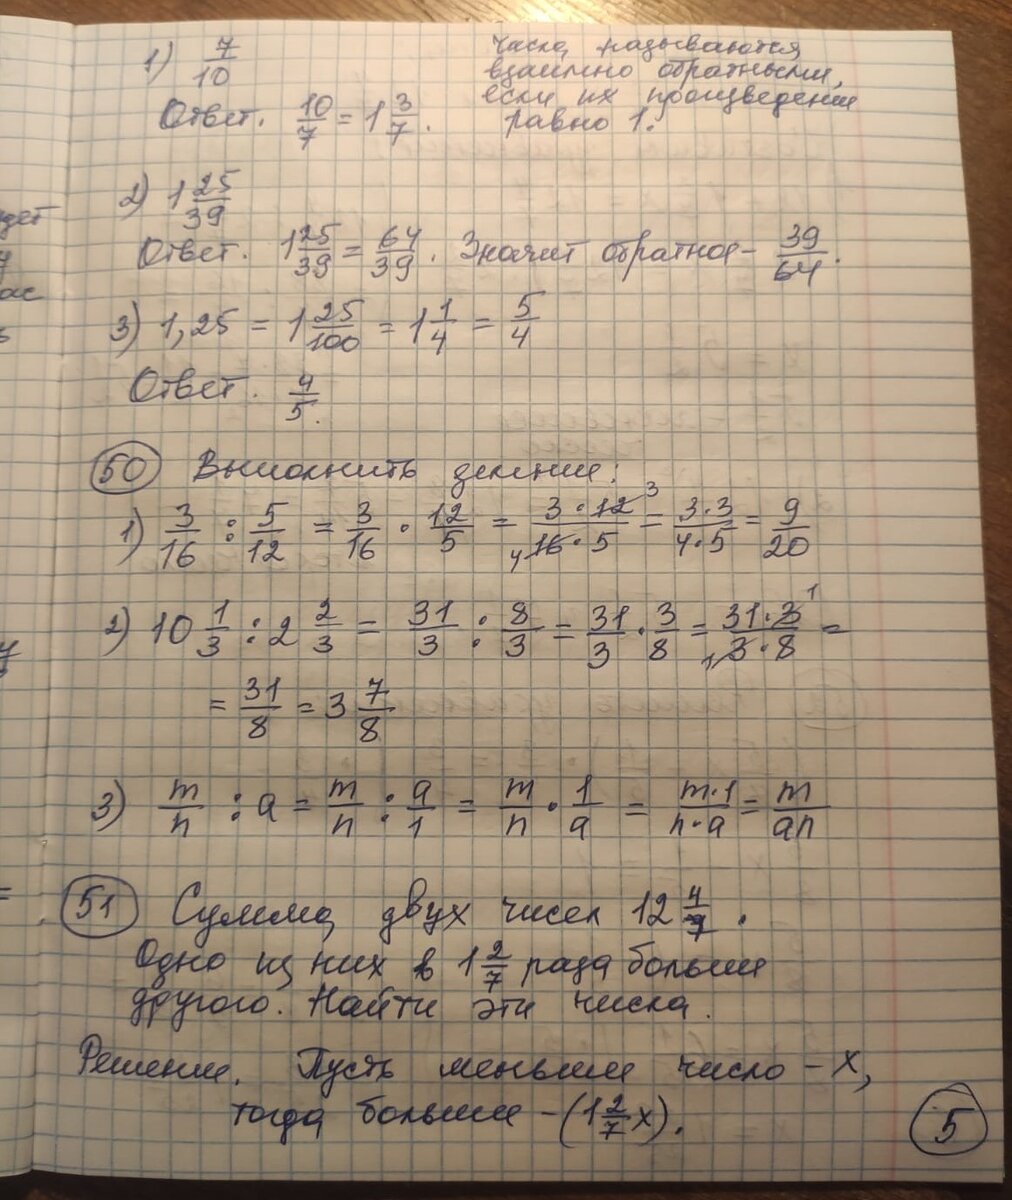 1) 7/10
Числа называются
взаимно обратными,
если их произведение
равно 1.
Ответ. 10/7 = 1 3/7.
2) 1 25/39
Ответ. 1 25/39 = 64/39. Значит обратное - 39/64.
3) 1,25 = 1 25/100 = 1 1/4 = 5/4
Ответ. 4/5.
50 Выполнить деление:
1) 3/16 : 5/12 = 3/16 · 12/5 = 3·12 3/4 16·5 = 3·3/4·5 = 9/20
2) 10 1/3 : 2 2/3 = 31/3 : 8/3 = 31/3 · 3/8 = 31·3 1/1 3·8 =
= 31/8 = 3 7/8
3) m/n : a = m/n : a/1 = m/n · 1/a = m·1/n·a = m/an
51 Сумма двух чисел 12 4/7.
Одно из них в 1 2/7 раза больше
другого. Найти эти числа.
Решение. Пусть меньшее число - x,
тогда больше - (1 2/7 x).
5